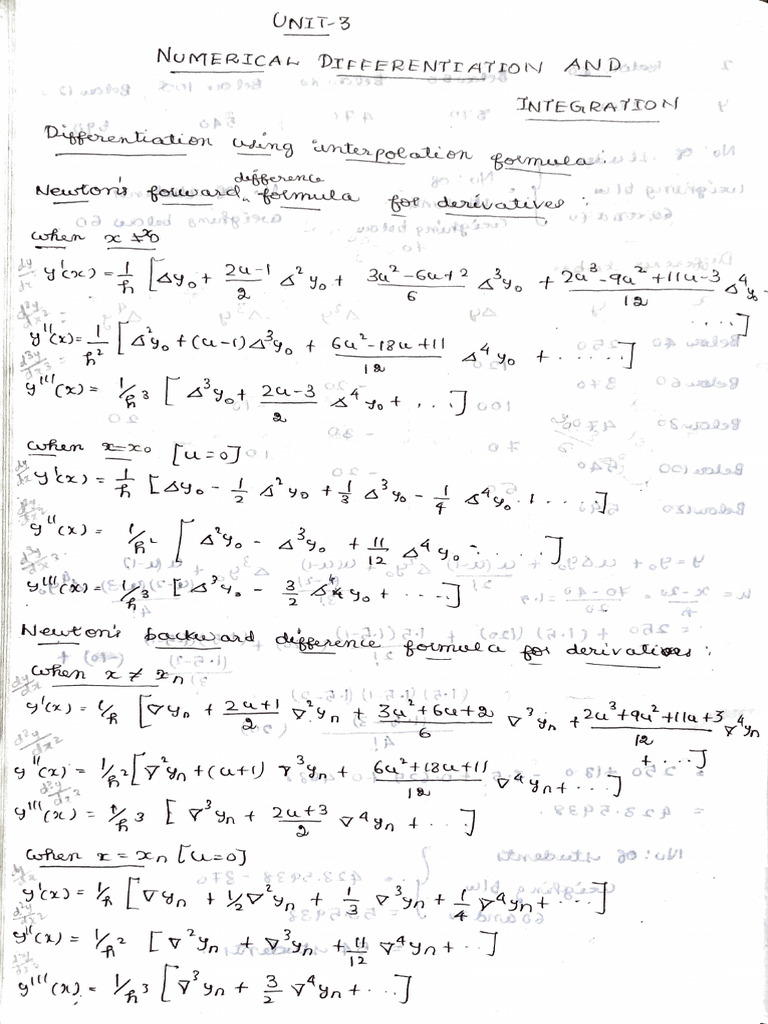 UNIT-3
NUMERICAL DIFFERENTIATION AND
INTEGRATION
Differentiation using interpolation formula:
Newton's forward difference formula for derivatives:
when x ≠ x0
dy/dx y'(x) = 1/h [Δy₀ + (2u-1)/2 Δ²y₀ + (3u²-6u+2)/6 Δ³y₀ + (2u³-9u²+11u-3)/12 Δ⁴y₀
....]
d²y/dx² y''(x) = 1/h² [Δ²y₀ + (u-1)Δ³y₀ + (6u²-18u+11)/12 Δ⁴y₀ + .....]
d³y/dx³ y'''(x) = 1/h³ [Δ³y₀ + (2u-3)/2 Δ⁴y₀ + ...]
when x=x₀ [u=0]
dy/dx y'(x) = 1/h [Δy₀ - 1/2 Δ²y₀ + 1/3 Δ³y₀ - 1/4 Δ⁴y₀ .....]
d²y/dx² y''(x) = 1/h² [Δ²y₀ - Δ³y₀ + 11/12 Δ⁴y₀ - .....]
d³y/dx³ y'''(x) = 1/h³ [Δ³y₀ - 3/2 Δ⁴y₀ + ....]
Newton's backward difference formula for derivatives:
when x ≠ xn
dy/dx y'(x) = 1/h [∇yn + (2u+1)/2 ∇²yn + (3u²+6u+2)/6 ∇³yn + (2u³+9u²+11u+3)/12 ∇⁴yn
+ ...]
d²y/dx² y''(x) = 1/h² [∇²yn + (u+1) ∇³yn + (6u²+18u+11)/12 ∇⁴yn + ...]
d³y/dx³ y'''(x) = 1/h³ [∇³yn + (2u+3)/2 ∇⁴yn + ...]
when x = xn [u=0]
dy/dx y'(x) = 1/h [∇yn + 1/2 ∇²yn + 1/3 ∇³yn + 1/4 ∇⁴yn + ...]
d²y/dx² y''(x) = 1/h² [∇²yn + ∇³yn + 11/12 ∇⁴yn + ...]
d³y/dx³ y'''(x) = 1/h³ [∇³yn + 3/2 ∇⁴yn + ...]